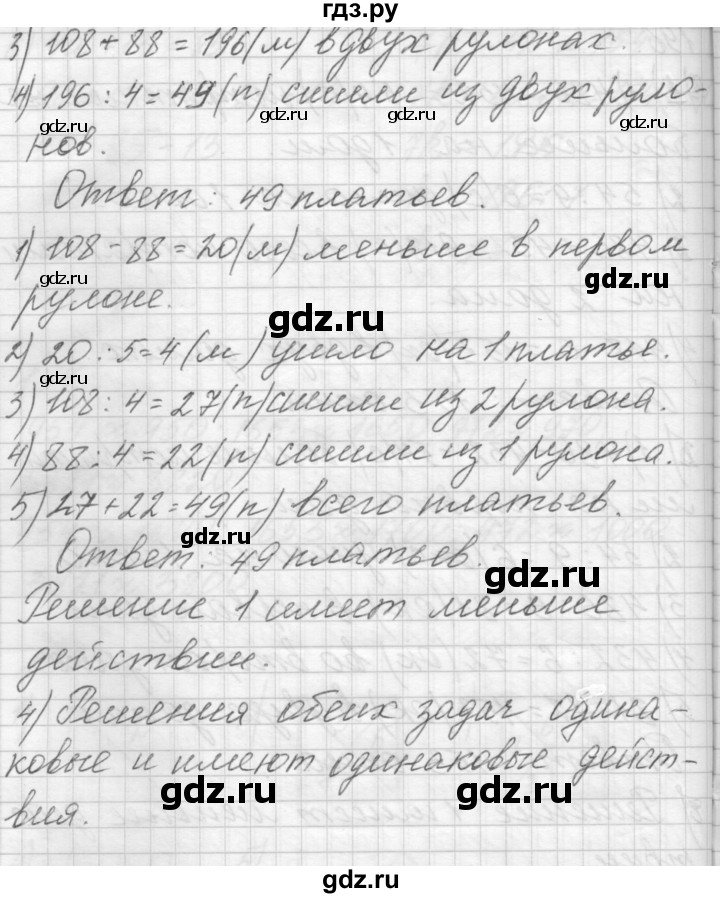 гдз.ру
3) 108 + 88 = 196 (м) в двух рулонах.
4) 196 : 4 = 49 (п) сшили из двух руло-
gdz.ru gdz.ru gdz.ru
нов.
Ответ: 49 платьев.
gdz.ru gdz.ru
1) 108 - 88 = 20 (м) меньше в первом
gdz.ru gdz.ru
рулоне.
gdz.ru
2) 20 : 5 = 4 (м) ушло на 1 платье.
gdz.ru
3) 108 : 4 = 27 (п) сшили из 2 рулона.
4) 88 : 4 = 22 (п) сшили из 1 рулона.
5) 27 + 22 = 49 (п) всего платьев.
gdz.ru
Ответ: 49 платьев.
gdz.ru
Решение 1 имеет меньше
действии.
4) Решения обеих задач одина-
ковые и имеют одинаковые дейст-
gdz.ru gdz.ru
вия.
gdz.ru